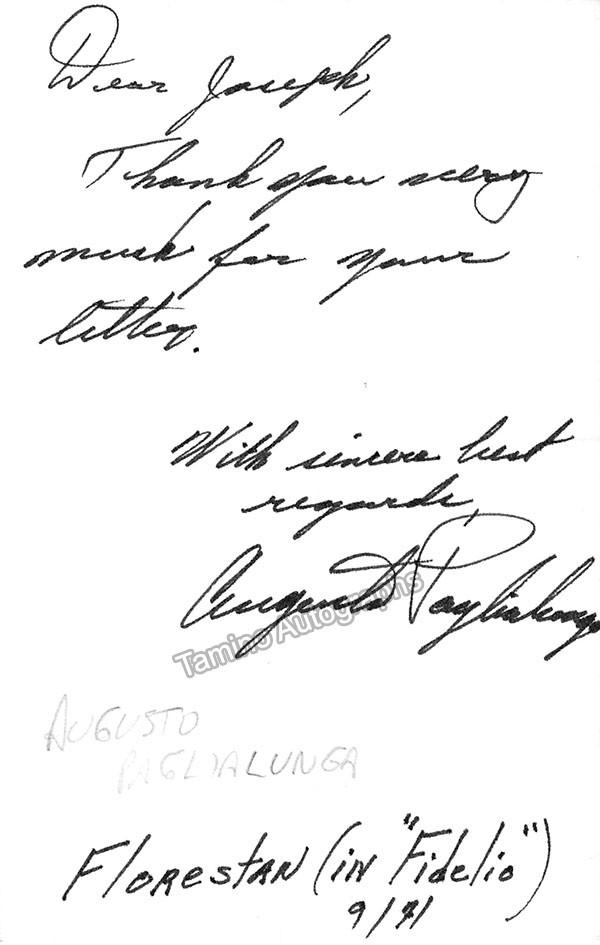 Dear Joseph,
Thank you very
much for your
letter.
With sincere best
regards,
Augusto Paglialunga
Tamino Autographs
AUGUSTO
PAGLIALUNGA
Florestan (in "Fidelio")
9/71